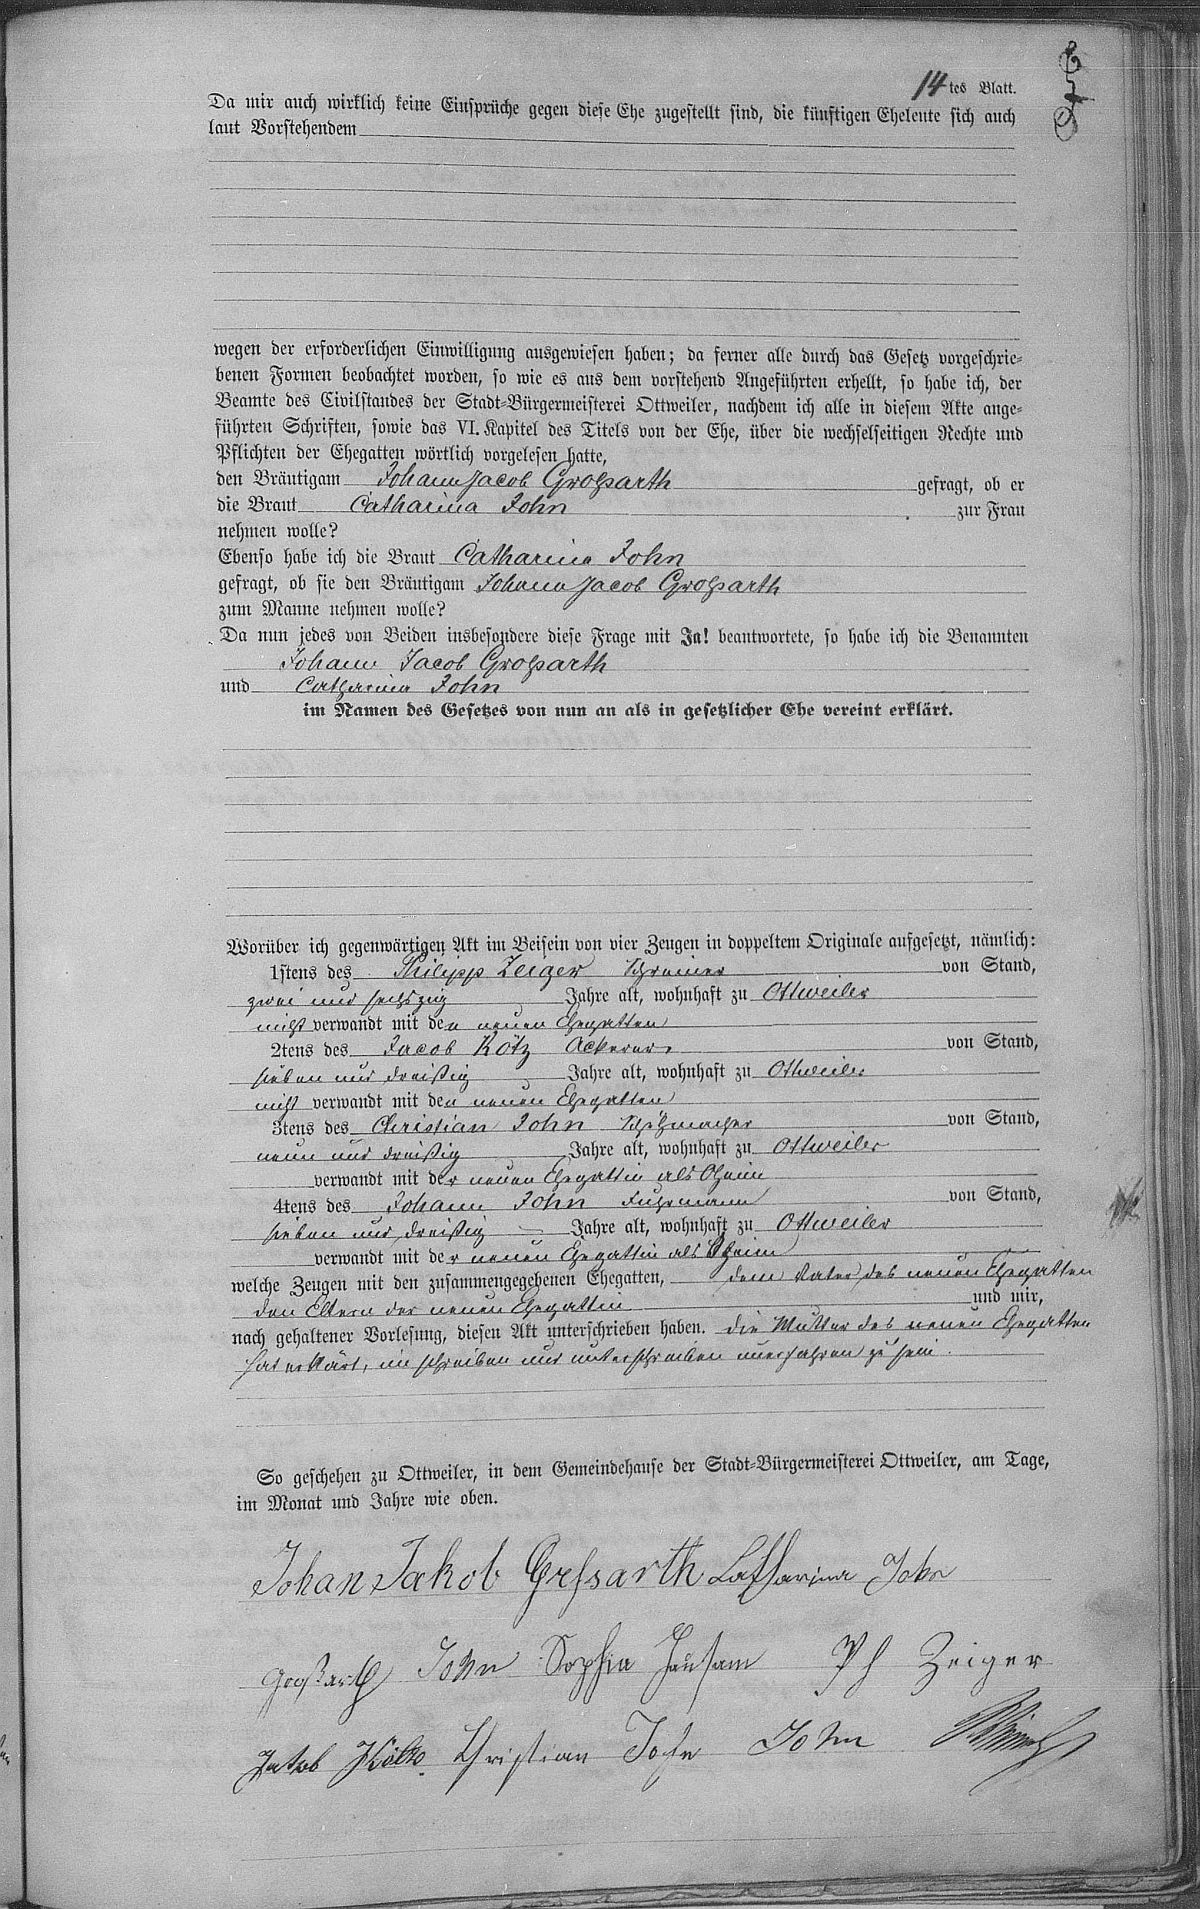 14 tes Blatt.
Da mir auch wirklich keine Einsprüche gegen diese Ehe zugestellt sind, die künftigen Eheleute sich auch
laut Vorstehendem
wegen der erforderlichen Einwilligung ausgewiesen haben; da ferner alle durch das Gesetz vorgeschrie-
benen Formen beobachtet worden, so wie es aus dem vorstehend Angeführten erhellt, so habe ich, der
Beamte des Civilstandes der Stadt-Bürgermeisterei Ottweiler, nachdem ich alle in diesem Akte ange-
führten Schriften, sowie das VI. Kapitel des Titels von der Ehe, über die wechselseitigen Rechte und
Pflichten der Ehegatten wörtlich vorgelesen hatte,
den Bräutigam Johann Jacob Großarth gefragt, ob er
die Braut Catharina John zur Frau
nehmen wolle?
Ebenso habe ich die Braut Catharina John
gefragt, ob sie den Bräutigam Johann Jacob Großarth
zum Manne nehmen wolle?
Da nun jedes von Beiden insbesondere diese Frage mit Ja! beantwortete, so habe ich die Benannten
Johann Jacob Großarth
und Catharina John
im Namen des Gesetzes von nun an als in gesetzlicher Ehe vereint erklärt.
Worüber ich gegenwärtigen Akt im Beisein von vier Zeugen in doppeltem Originale aufgesetzt, nämlich:
1stens des Philipp Zeiger Schreiner von Stand,
zwei und sechszig Jahre alt, wohnhaft zu Ottweiler
nicht verwandt mit den neuen Ehegatten
2tens des Jacob Kötz Ackerer von Stand,
sieben und dreißig Jahre alt, wohnhaft zu Ottweiler
nicht verwandt mit den neuen Ehegatten
3tens des Christian John von Stand,
neun und dreißig Jahre alt, wohnhaft zu Ottweiler
verwandt mit der neuen Ehegattin als Oheim
4tens des Johann John Fuhrmann von Stand,
sieben und dreißig Jahre alt, wohnhaft zu Ottweiler
verwandt mit der neuen Ehegattin als Oheim
welche Zeugen mit den zusammengegebenen Ehegatten, dem Vater des neuen Ehegatten
den Eltern der neuen Ehegattin und mir,
nach gehaltener Vorlesung, diesen Akt unterschrieben haben. die Mutter des neuen Ehegatten
hat erklärt, im schreiben und unterschreiben unerfahren zu sein.
So geschehen zu Ottweiler, in dem Gemeindehause der Stadt-Bürgermeisterei Ottweiler, am Tage,
im Monat und Jahre wie oben.
Johan Jakob Grosarth Catharina John
Großarth John Sophia Hausam Ph Zeiger
Jakob Christian John John